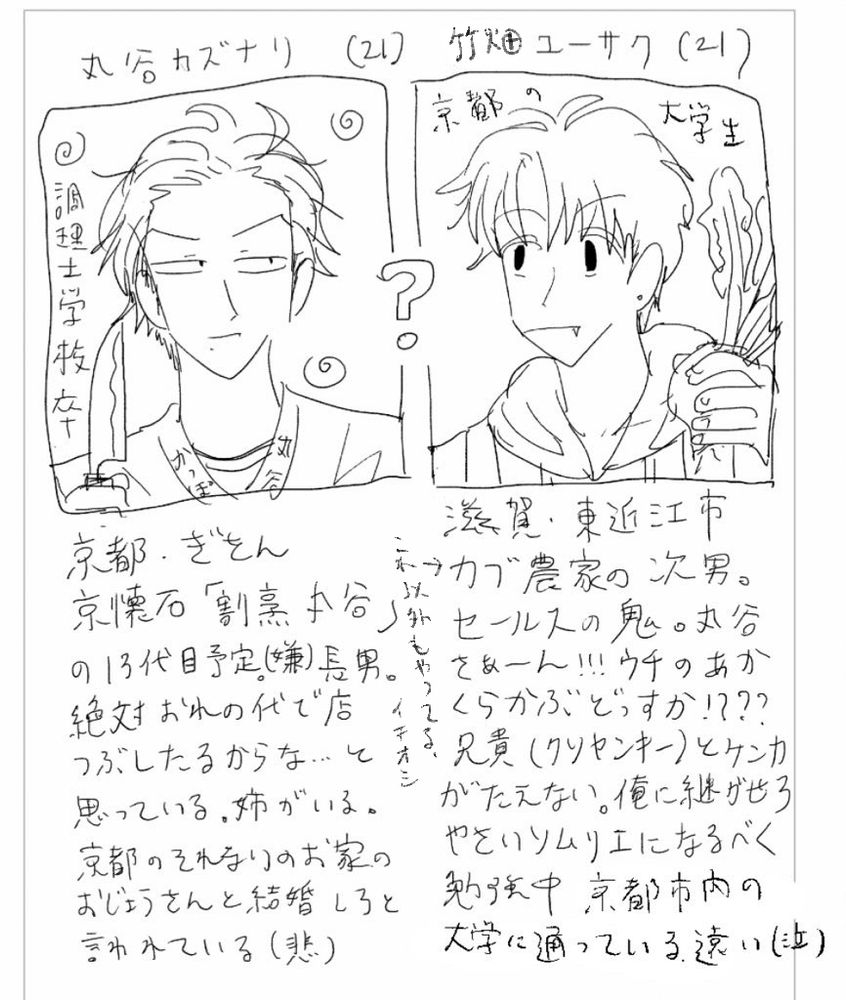 丸谷カズナリ (21)
調理士学校卒
かっぽ
丸谷
?
京都・ぎをん
京懐石「割烹 丸谷」
の13代目予定。(嫌)長男。
絶対おれの代で店
つぶしたるからな…と
思っている。姉がいる。
京都のそれなりのお家の
おじょうさんと結婚しろと
言われている(悲)
竹畑ユーサク(21)
京都の
大学生
滋賀・東近江市
カブ農家の次男。
これ以外もやってる、
イチオシ
セールスの鬼。丸谷
さぁーん!!!ウチのあか
くらかぶどっすか!???
兄貴(クソヤンキー)とケンカ
がたえない。俺に継がせろ
やさいソムリエになるべく
勉強中 京都市内の
大学に通っている.遠い(泣)